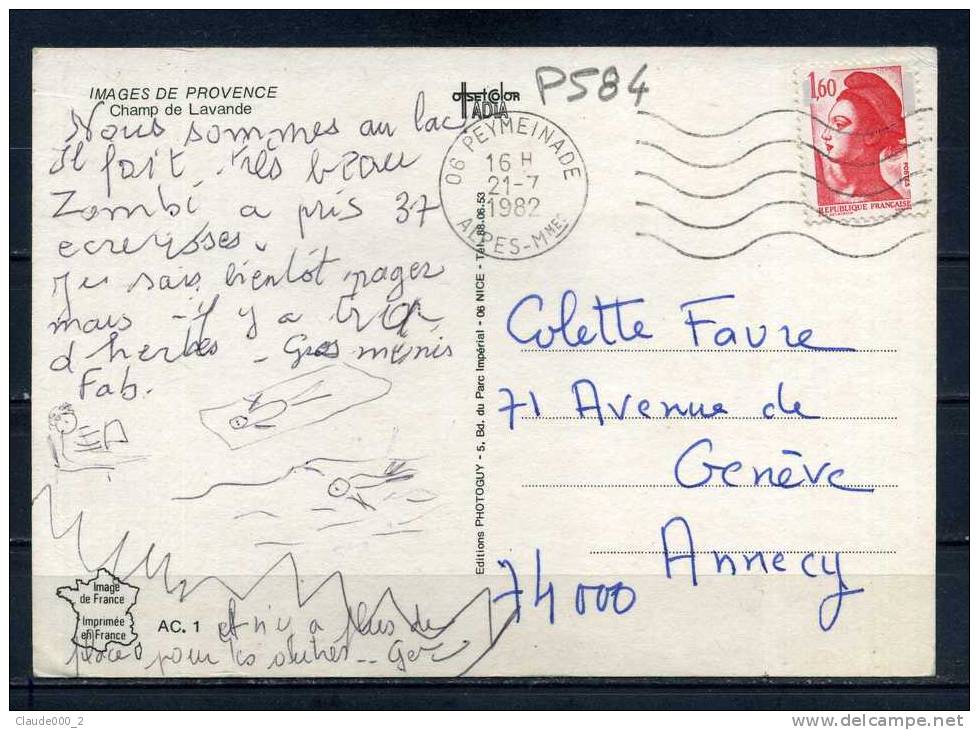 IMAGES DE PROVENCE
Champ de Lavande
Nous sommes au lac
il fait très beau
Zombi a pris 37
ecrevisses.
Je sais bientôt nager
mais il y a trop
d'herbes - Gros
Fab.
OffsetColor
ADIA
P584
06 PEYMEINADE
16 H
21-7
1982
ALPES-MMES
1,60
POSTES
REPUBLIQUE FRANÇAISE
Editions PHOTOGUY - 5, Bd. du Parc Impérial - 06 NICE - Tél. 88.06.53
Colette Favre
71 Avenue de
Genève
74000 Annecy
Image
de France
Imprimée
en France
AC. 1
et n'y a plus de
place pour les autres --
Claude000_2
www.delcampe.net